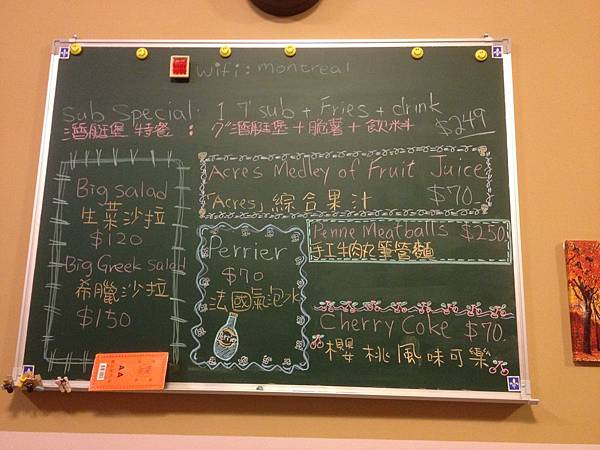 wifi: montreal
Sub Special: 1 7" sub + Fries + drink
潛艇堡 特餐 : 7"潛艇堡+脆薯+飲料 $249
Big Salad
生菜沙拉
$120
Big Greek Salad
希臘沙拉
$150
Acres Medley of Fruit Juice
「Acres」綜合果汁 $70.-
Perrier
$70
法國氣泡水
Penne Meatballs $250.
手工牛肉丸筆管麵
Cherry Coke $70.
櫻桃風味可樂